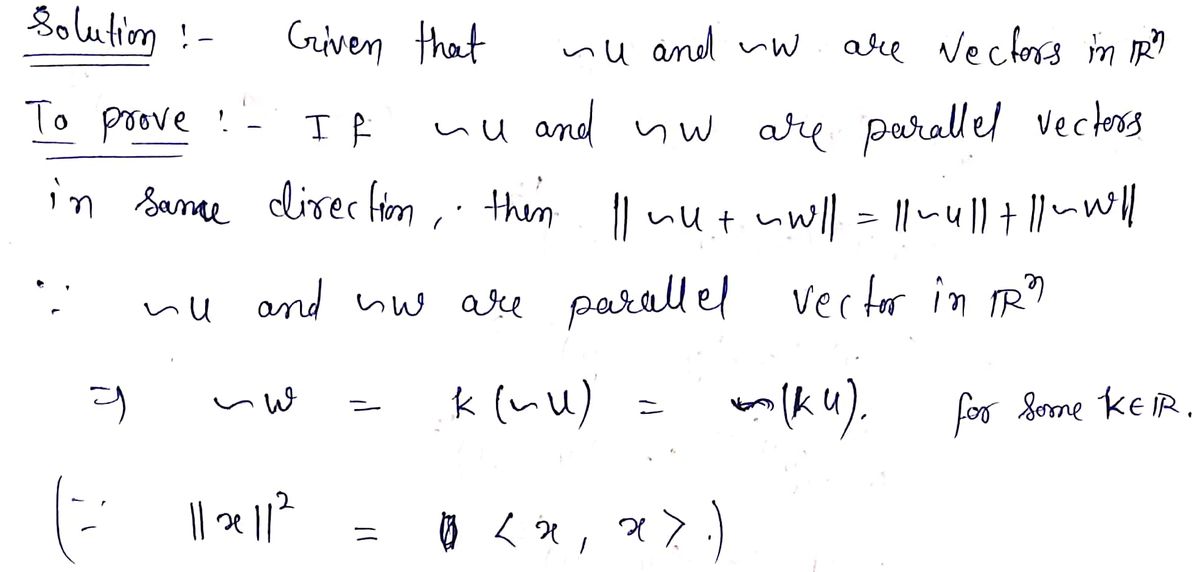 Solution :- Given that ~u and ~w are vectors in ℝⁿ
To prove :- If ~u and ~w are parallel vectors
in same direction, then ||~u + ~w|| = ||~u|| + ||~w||
∵ ~u and ~w are parallel vector in ℝⁿ
⇒ ~w = k(~u) = ~(ku). for some k∈ℝ.
(∵ ||x||² = <x, x>.)